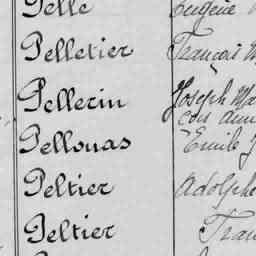 Pelle Eugène
Pelletier François
Pellerin Joseph
Pellouas Emile
Peltier Adolphe
Peltier